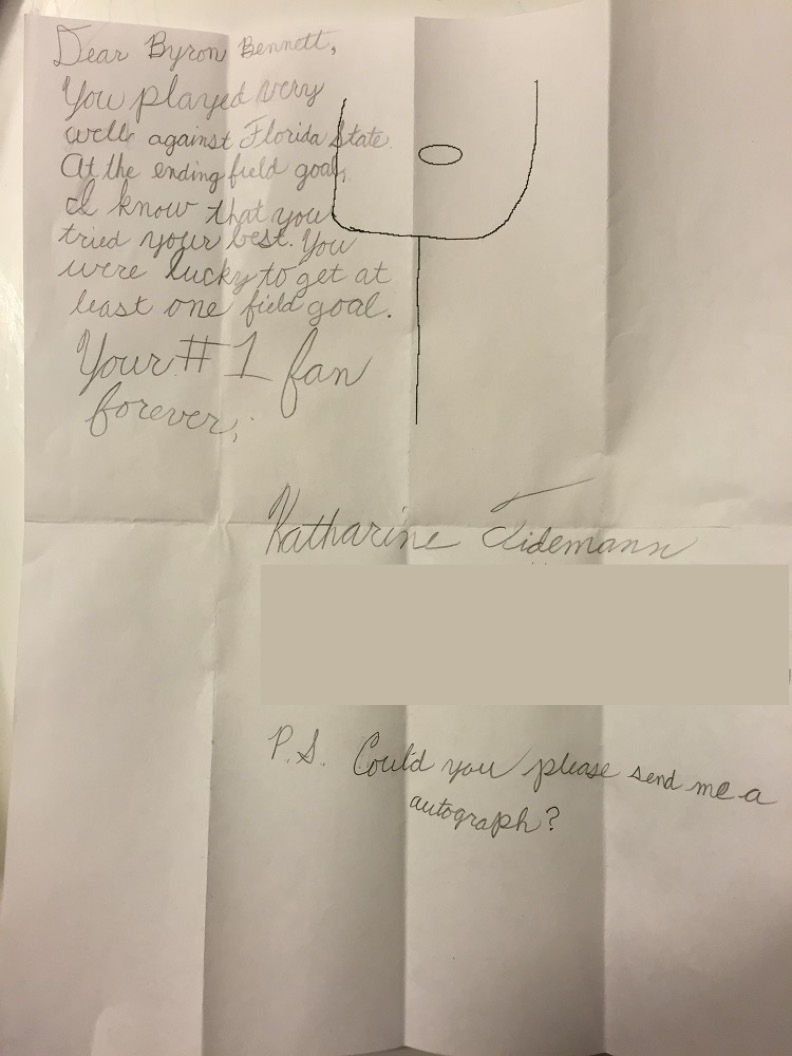 Dear Byron Bennett,
You played very
well against Florida State.
At the ending field goal,
I know that you
tried your best. You
were lucky to get at
least one field goal.
Your #1 fan
forever,
Katharine Tidemann
P.S. Could you please send me a
autograph?